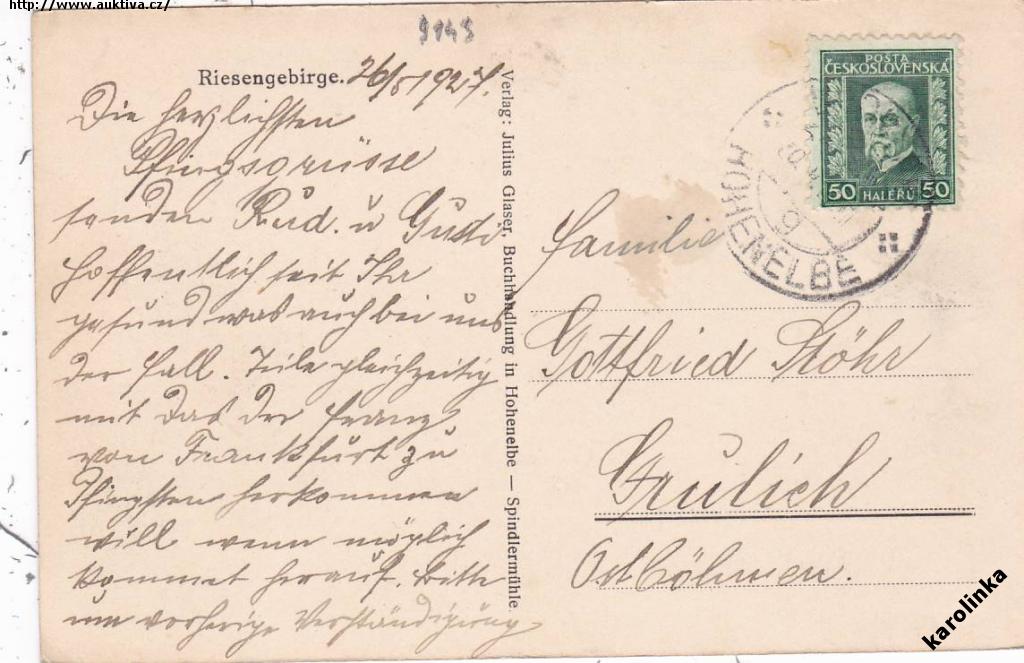 http://www.auktiva.cz/
9145
Riesengebirge. 26/5 1927.
Die herzlichsten
Pfingsgrüsse
senden Rud. u Gusti
hoffentlich seit Ihr
gesund was auch bei uns
der Fall. Teile gleichzeitig
mit das der Franz
von Frankfurt zu
Pfingsten herkommen
will wenn möglich
kommet herauf. Bitte
um vorherige Verständigung
Verlag: Julius Glaser, Buchhandlung in Hohenelbe — Spindlermühle
POŠTA
ČESKOSLOVENSKÁ
50 HALÉŘŮ 50
HOHENELBE
Familie
Gottfried Stöhr
Grulich
Ostböhmen.
karolinka